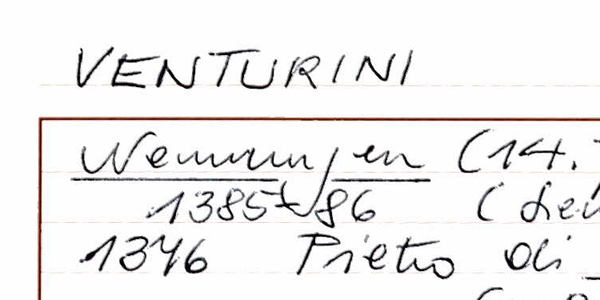 VENTURINI
Nennungen (14.
1385/86 (
1346 Pietro di
(